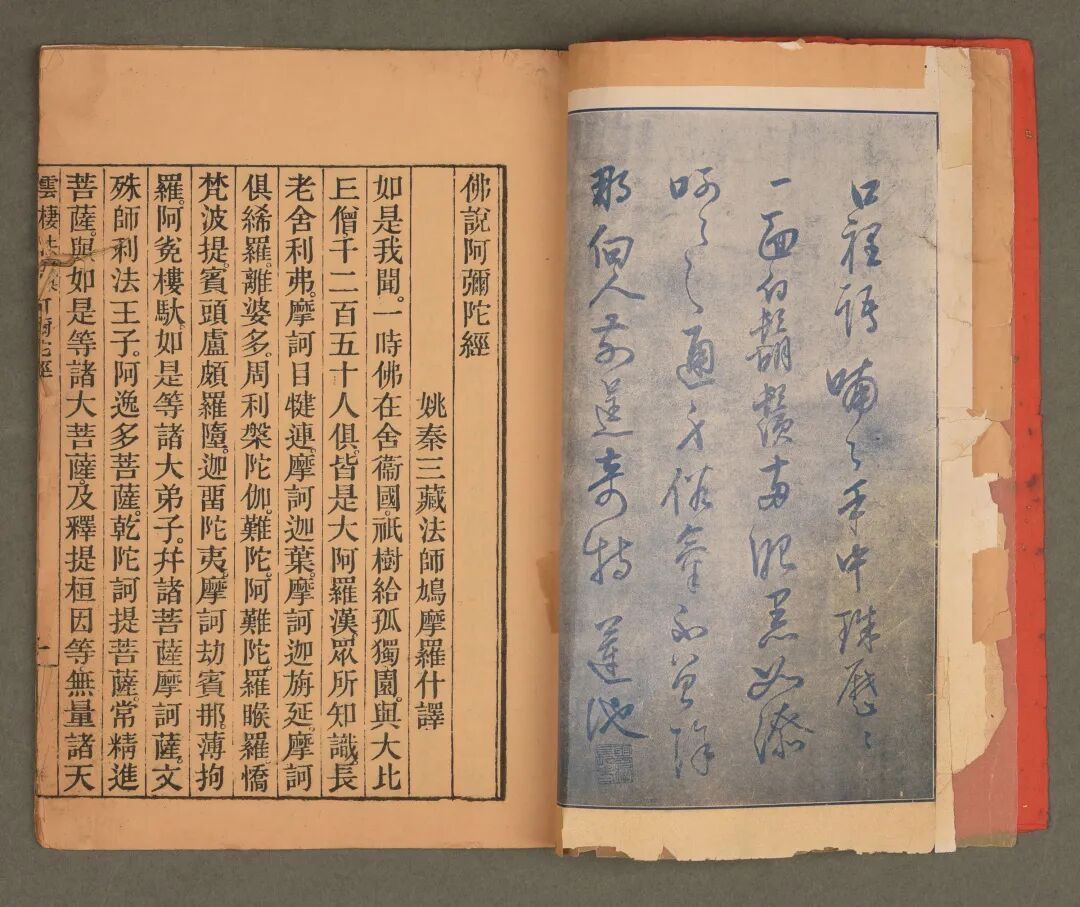 口裡誦喃〻手中珠歷〻
一面白鬍鬚両眼黑如漆
呵〻〻通身俗氣不曾除
那向人前逞奇特 蓮池
佛說阿彌陀經
姚秦三藏法師鳩摩羅什譯
如是我聞。一時佛在舍衞國。祇樹給孤獨園。與大比
丘僧千二百五十人俱。皆是大阿羅漢。眾所知識。長
老舍利弗。摩訶目犍連。摩訶迦葉。摩訶迦旃延。摩訶
俱絺羅。離婆多。周利槃陀伽。難陀。阿難陀。羅睺羅。憍
梵波提。賓頭盧頗羅墮。迦畱陀夷。摩訶劫賓那。薄拘
羅。阿㝹樓馱。如是等諸大弟子。幷諸菩薩摩訶薩。文
殊師利法王子。阿逸多菩薩。乾陀訶提菩薩。常精進
菩薩。與如是等諸大菩薩。及釋提桓因等。無量諸天
雲棲法 阿彌陀經 一